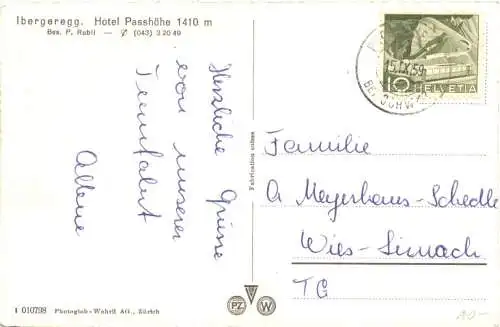 Ibergeregg. Hotel Passhöhe 1410 m
Bes. P. Rubli — (043) 3 20 49
Herzliche Grüsse
von unserer
HELVETIA
10
15.IX.59
Fabrication suisse
Familie
A Meyerhans-Schedle
Wies-Sirnach
TG
1 010798 Photoglob-Wehrli AG., Zürich
PZ W